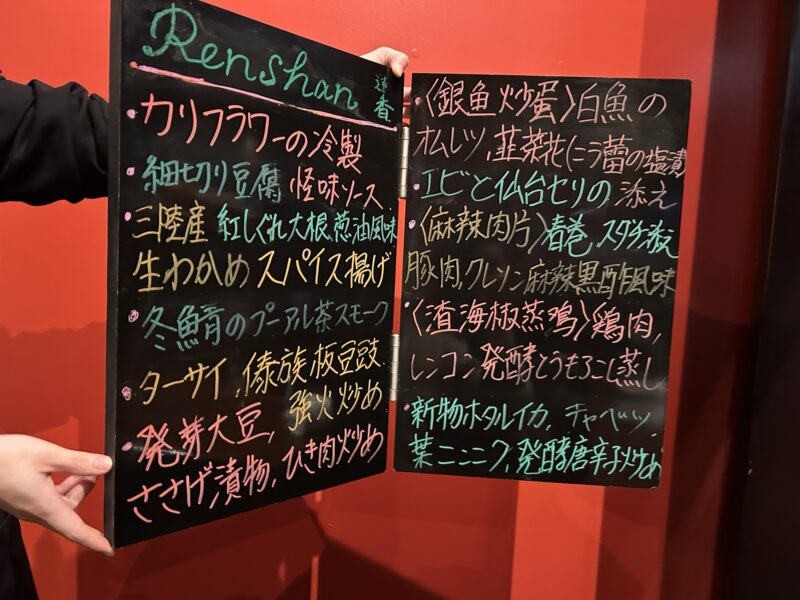 Renshan
蓮香
・カリフラワーの冷製
・細切り豆腐 怪味ソース
・三陸産 紅しぐれ大根 葱油風味
生わかめ スパイス揚げ
・冬鯖のプーアル茶スモーク
・ターサイ、傣族板豆豉
強火炒め
・発芽大豆、
ささげ漬物、ひき肉炒め
・〈銀魚炒蛋〉白魚の
オムレツ、韮菜花(ニラ蕾の塩漬
・エビと仙台セリの 添え
・〈麻辣肉片〉春巻、スダチ添え
豚肉、クレソン 麻辣黒酢風味
・〈渣海椒蒸鸡〉鶏肉、
レンコン 発酵とうもろこし蒸し
・新物ホタルイカ、キャベツ、
葉ニンニク、発酵唐辛子炒め